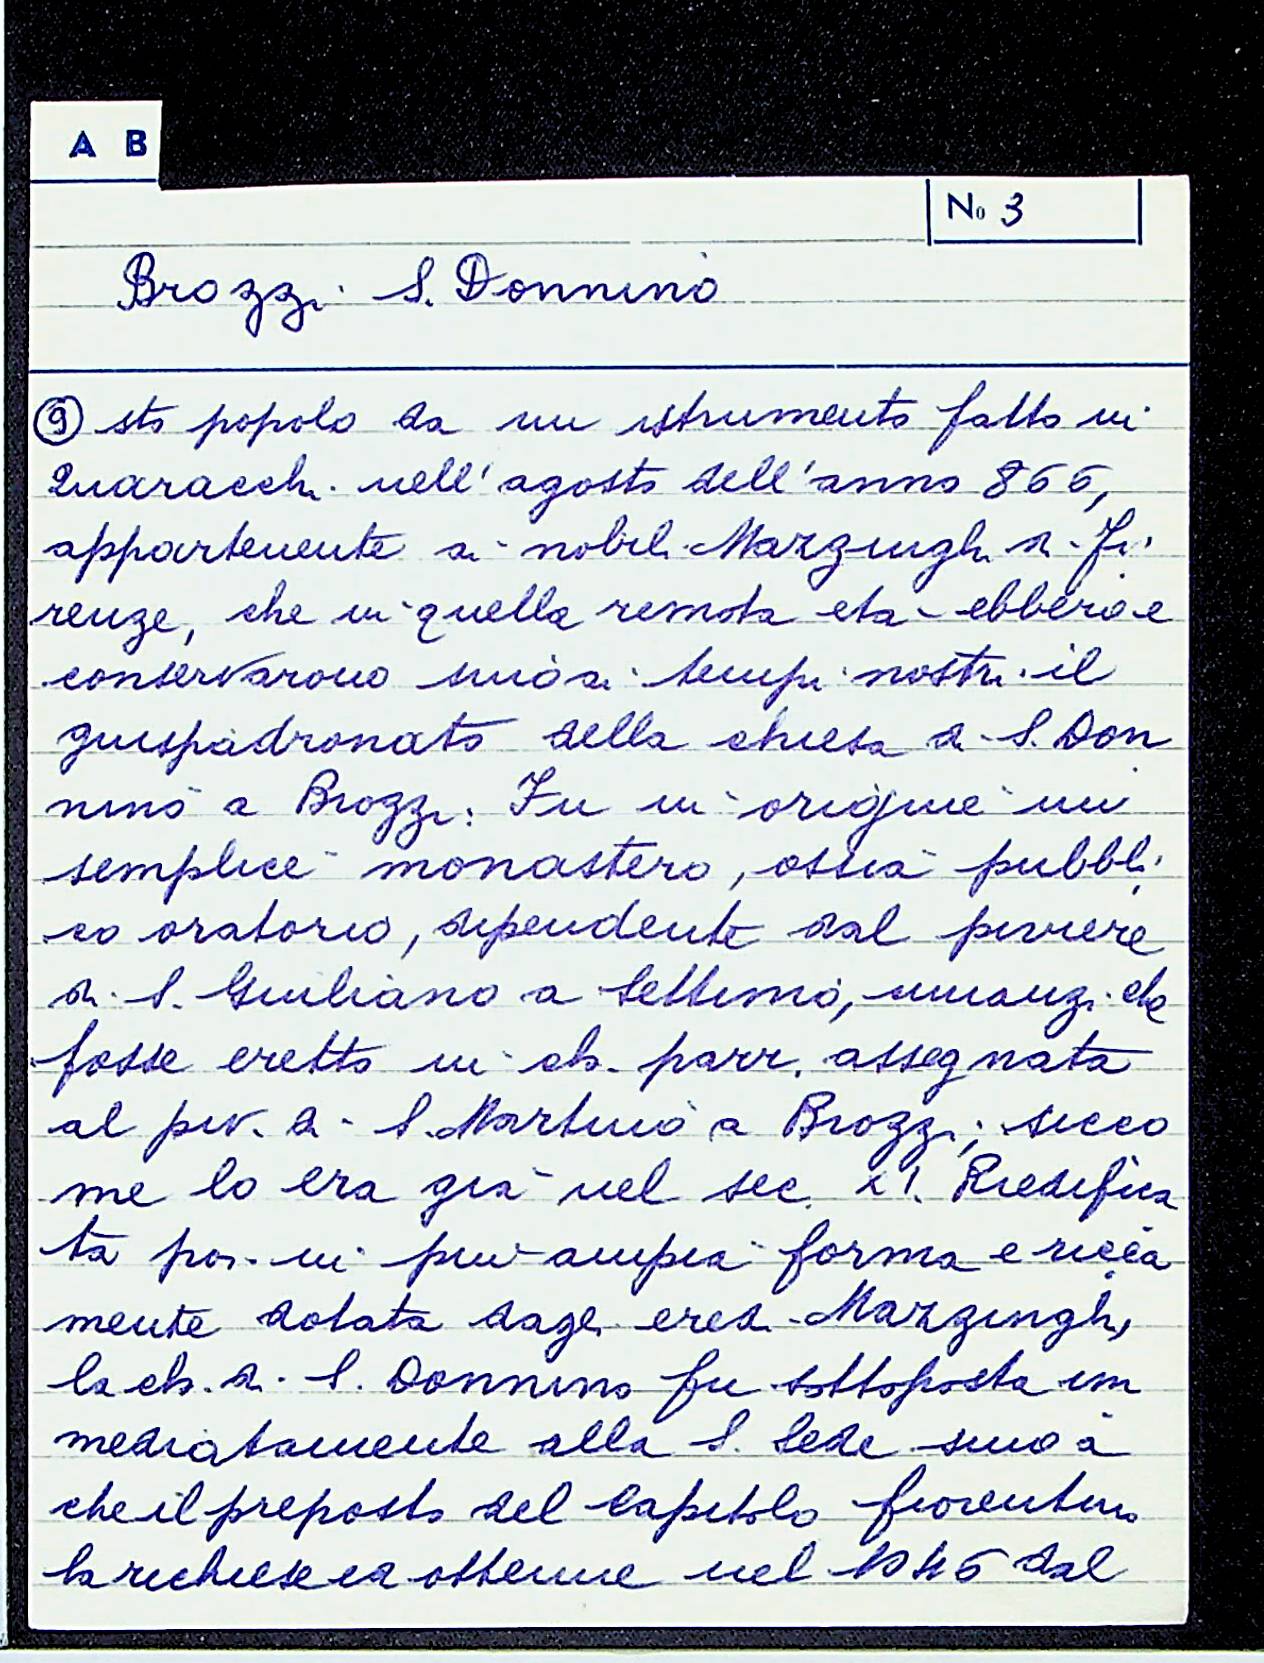 A B
No 3
Brozzi S. Donnino
9 sto popolo da un istrumento fatto in
Quaracchi nell'agosto dell'anno 866,
appartenente ai nobili Marzinghi di Fi
renze, che in quella remota età ebbero e
conservarono sino ai tempi nostri il
giuspadronato della chiesa di S. Don
nino a Brozzi. Fu in origine un
semplice monastero, ossia pubbli
co oratorio, dipendente dal piviere
di S. Giuliano a Settimo, innanzi che
fosse eretto in ch. parr. assegnata
al piv. di S. Martino a Brozzi, sicco
me lo era già nel sec. XI. Riedifica
ta poi in più ampia forma e ricca
mente dotata dagli eredi Marzinghi,
la ch. di S. Donnino fu sottoposta im
mediatamente alla S. Sede sino a
che il preposto del Capitolo fiorentino
la richiese ed ottenne nel 1046 dal